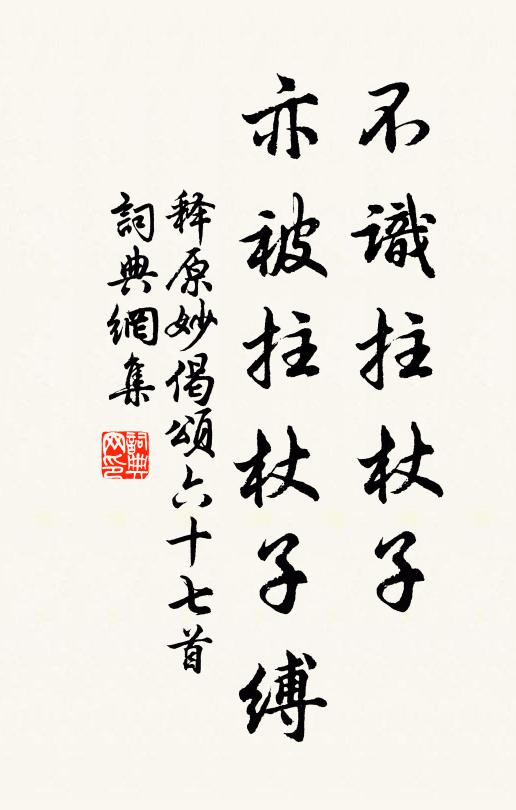 不識拄杖子
亦被拄杖子縛
释原妙偈頌六十七首
詞典網集
詞典网印